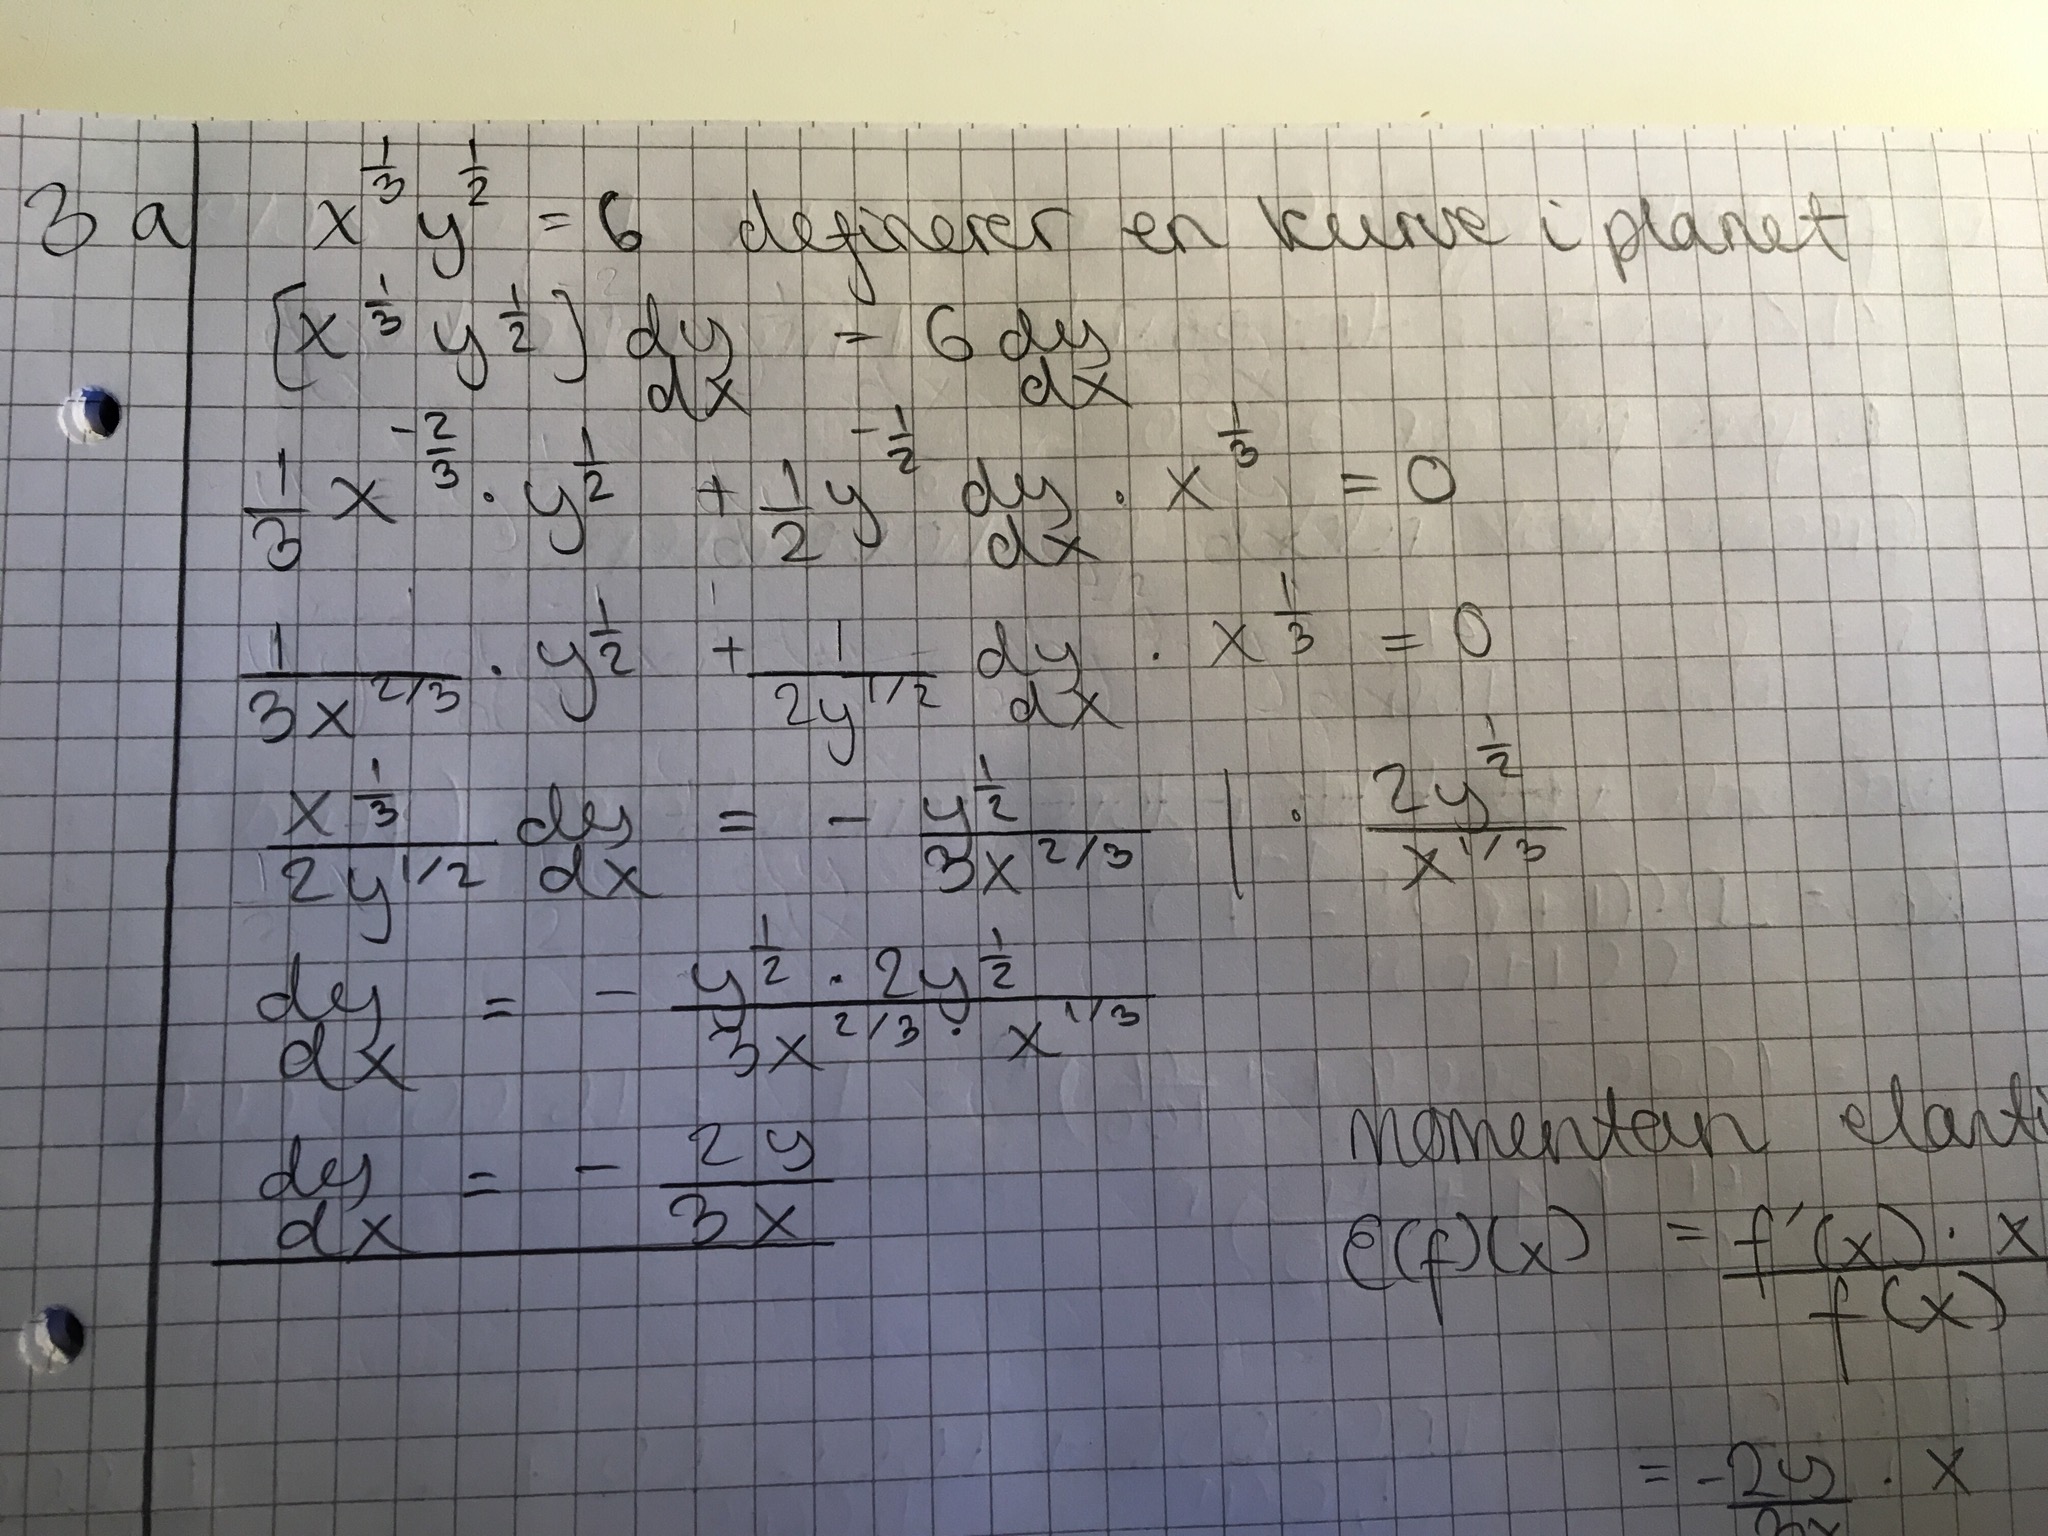 3a x^{\frac{1}{3}} y^{\frac{1}{2}} = 6 definerer en kurve i planet
[x^{\frac{1}{3}} y^{\frac{1}{2}}] \frac{dy}{dx} = 6 \frac{dy}{dx}
\frac{1}{3} x^{-\frac{2}{3}} · y^{\frac{1}{2}} + \frac{1}{2} y^{-\frac{1}{2}} \frac{dy}{dx} · x^{\frac{1}{3}} = 0
\frac{1}{3x^{2/3}} · y^{\frac{1}{2}} + \frac{1}{2y^{1/2}} \frac{dy}{dx} · x^{\frac{1}{3}} = 0
\frac{x^{\frac{1}{3}}}{2y^{1/2}} \frac{dy}{dx} = - \frac{y^{\frac{1}{2}}}{3x^{2/3}} | · \frac{2y^{\frac{1}{2}}}{x^{1/3}}
\frac{dy}{dx} = - \frac{y^{\frac{1}{2}} · 2y^{\frac{1}{2}}}{3x^{2/3} · x^{1/3}}
\frac{dy}{dx} = - \frac{2y}{3x}
Momentan elasti
E(f)(x) = \frac{f'(x) · x}{f(x)}
= \frac{-2y}{3x} · x